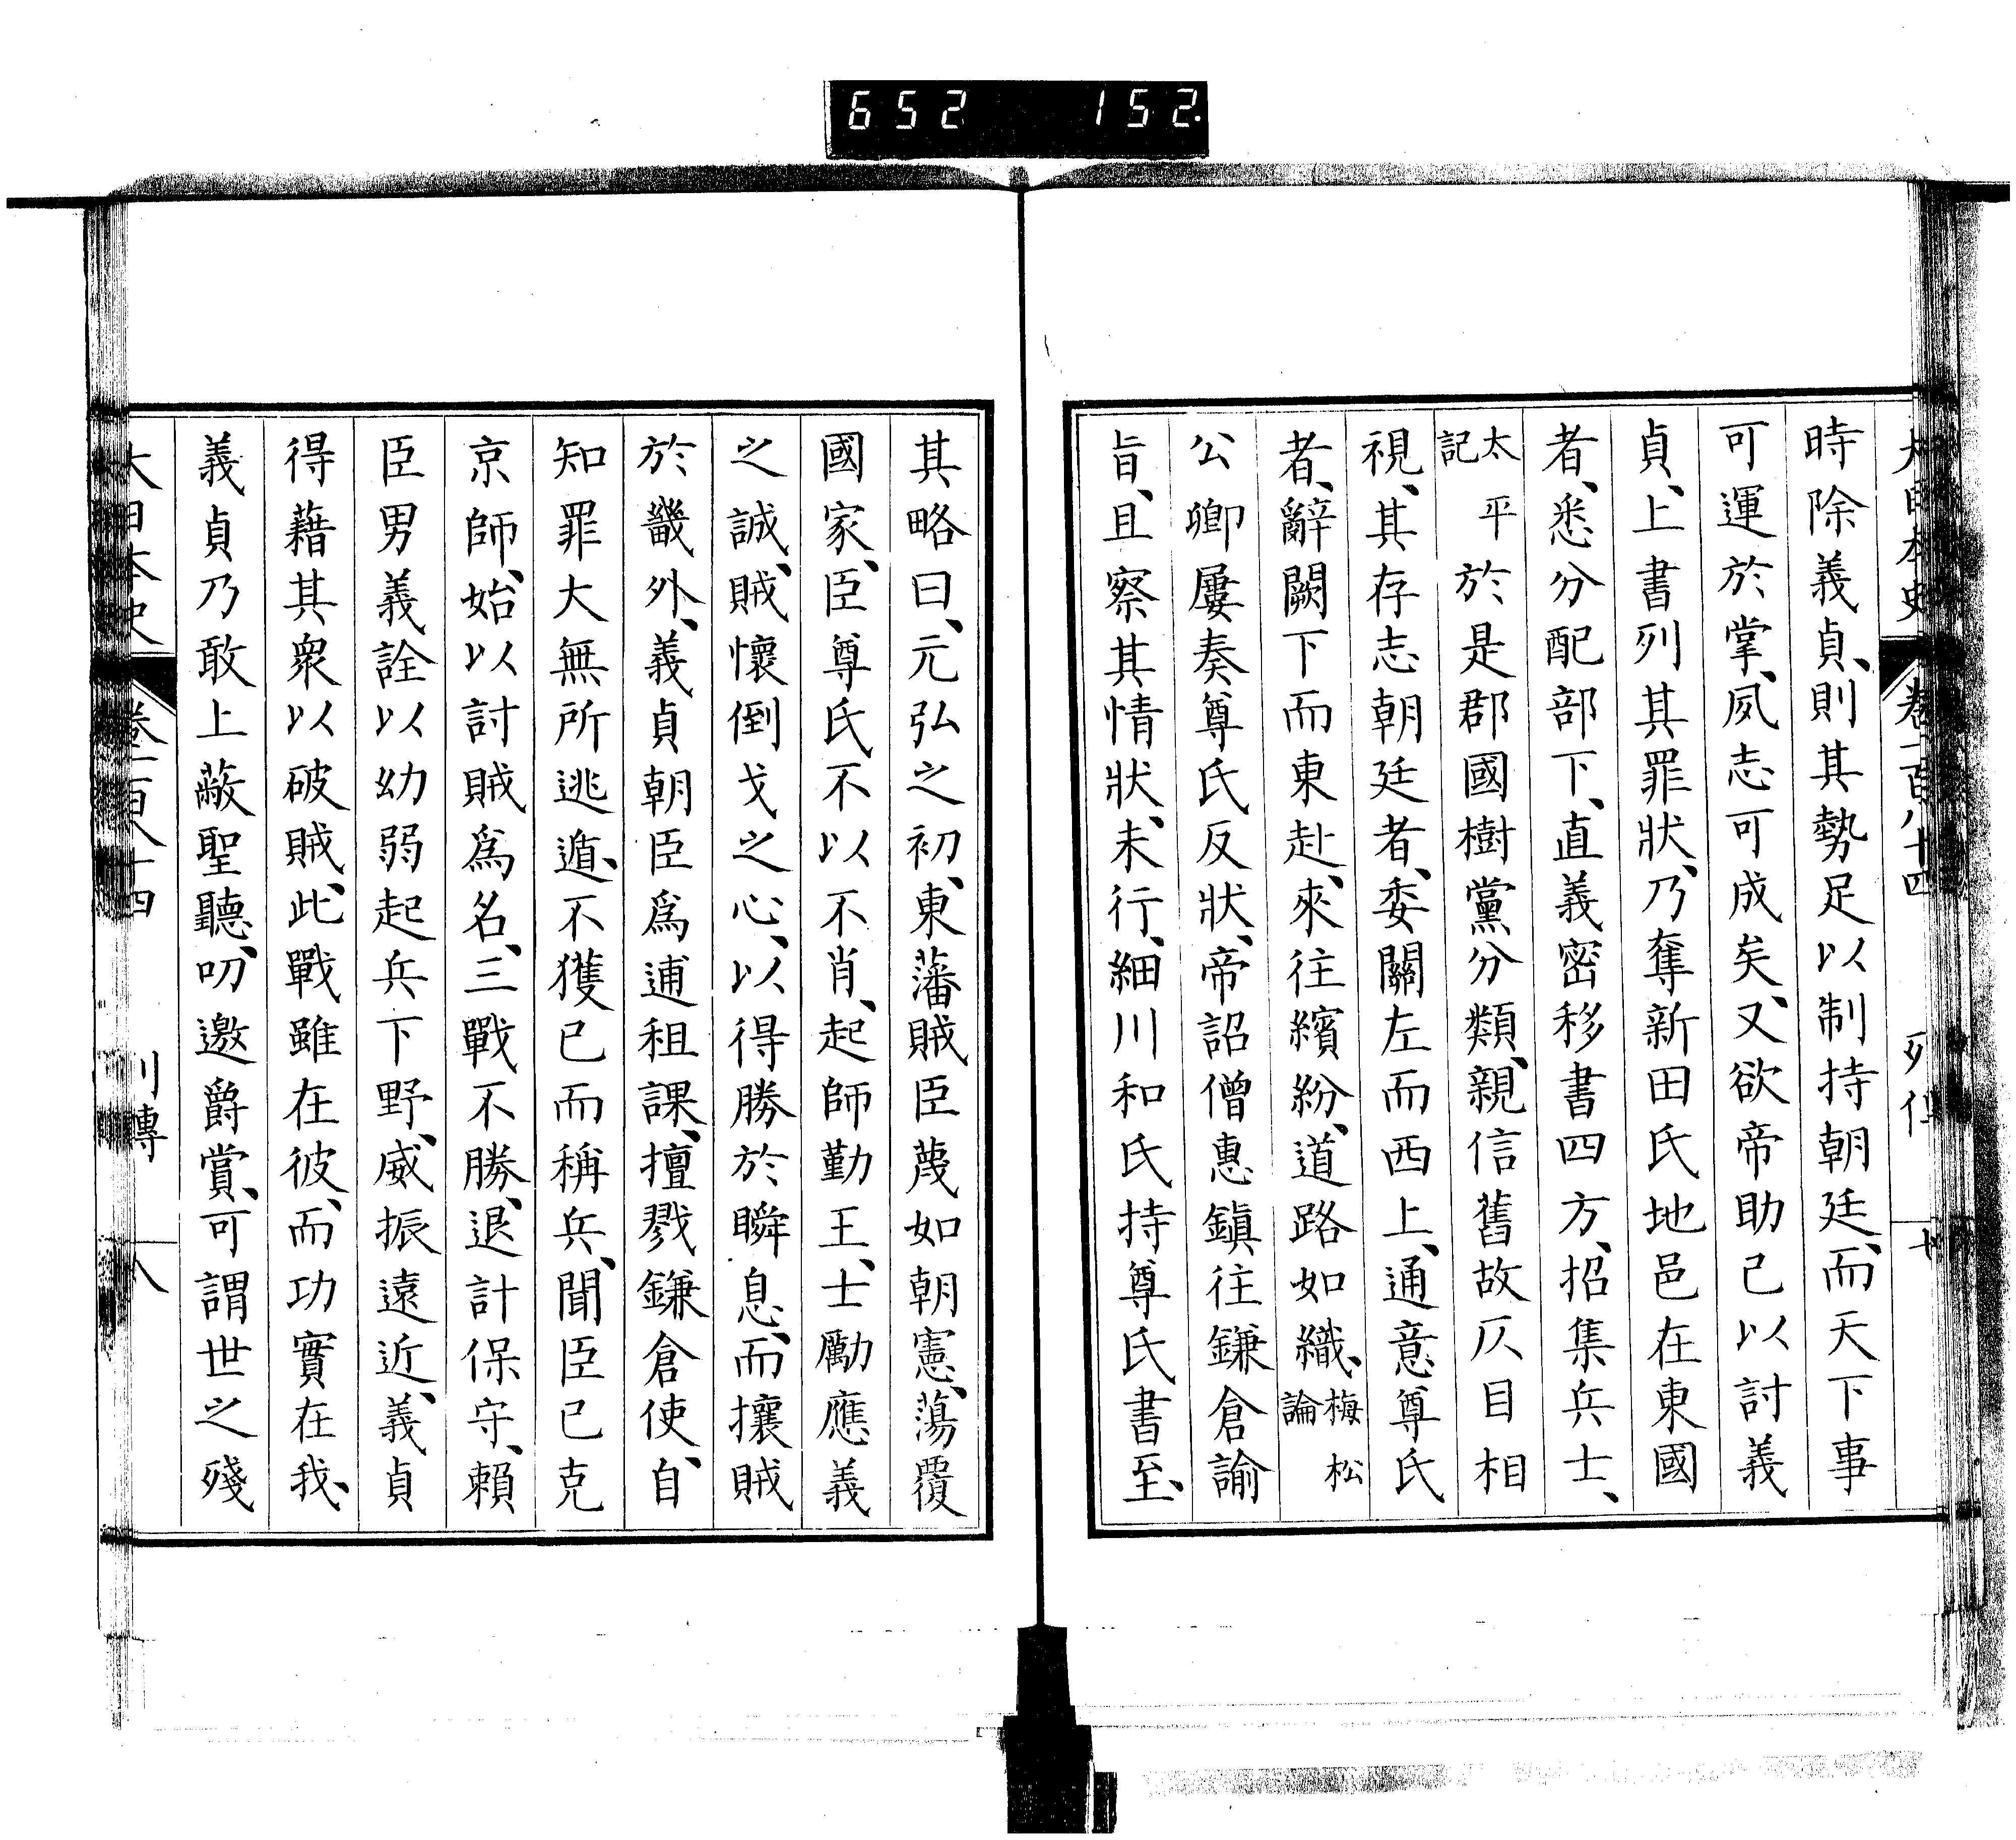 652 152.
大日本史 卷一百八十四 列傳
時除義貞、則其勢足以制持朝廷、而天下事
可運於掌、夙志可成矣、又欲帝助己以討義
貞、上書列其罪狀、乃奪新田氏地邑在東國
者、悉分配部下、直義密移書四方、招集兵士、
太平記於是郡國樹黨分類、親信舊故仄目相
視、其存志朝廷者、委關左而西上、通意尊氏
者、辭闕下而東赴、來往繽紛、道路如織、梅松論
公卿屢奏尊氏反狀、帝詔僧惠鎭往鎌倉諭
旨、且察其情狀、未行、細川和氏持尊氏書至、
其略曰、元弘之初、東藩賊臣蔑如朝憲、蕩覆
國家、臣尊氏不以不肖、起師勤王、士勵應義
之誠、賊懷倒戈之心、以得勝於瞬息、而攘賊
於畿外、義貞朝臣爲逋租課、擅戮鎌倉使、自
知罪大無所逃遁、不獲已而稱兵、聞臣已克
京師、始以討賊爲名、三戰不勝、退計保守、賴
臣男義詮以幼弱起兵下野、威振遠近、義貞
得藉其衆以破賊、此戰雖在彼、而功實在我、
義貞乃敢上蔽聖聽、叨邀爵賞、可謂世之殘
大日本史 卷一百八十四 列傳 八